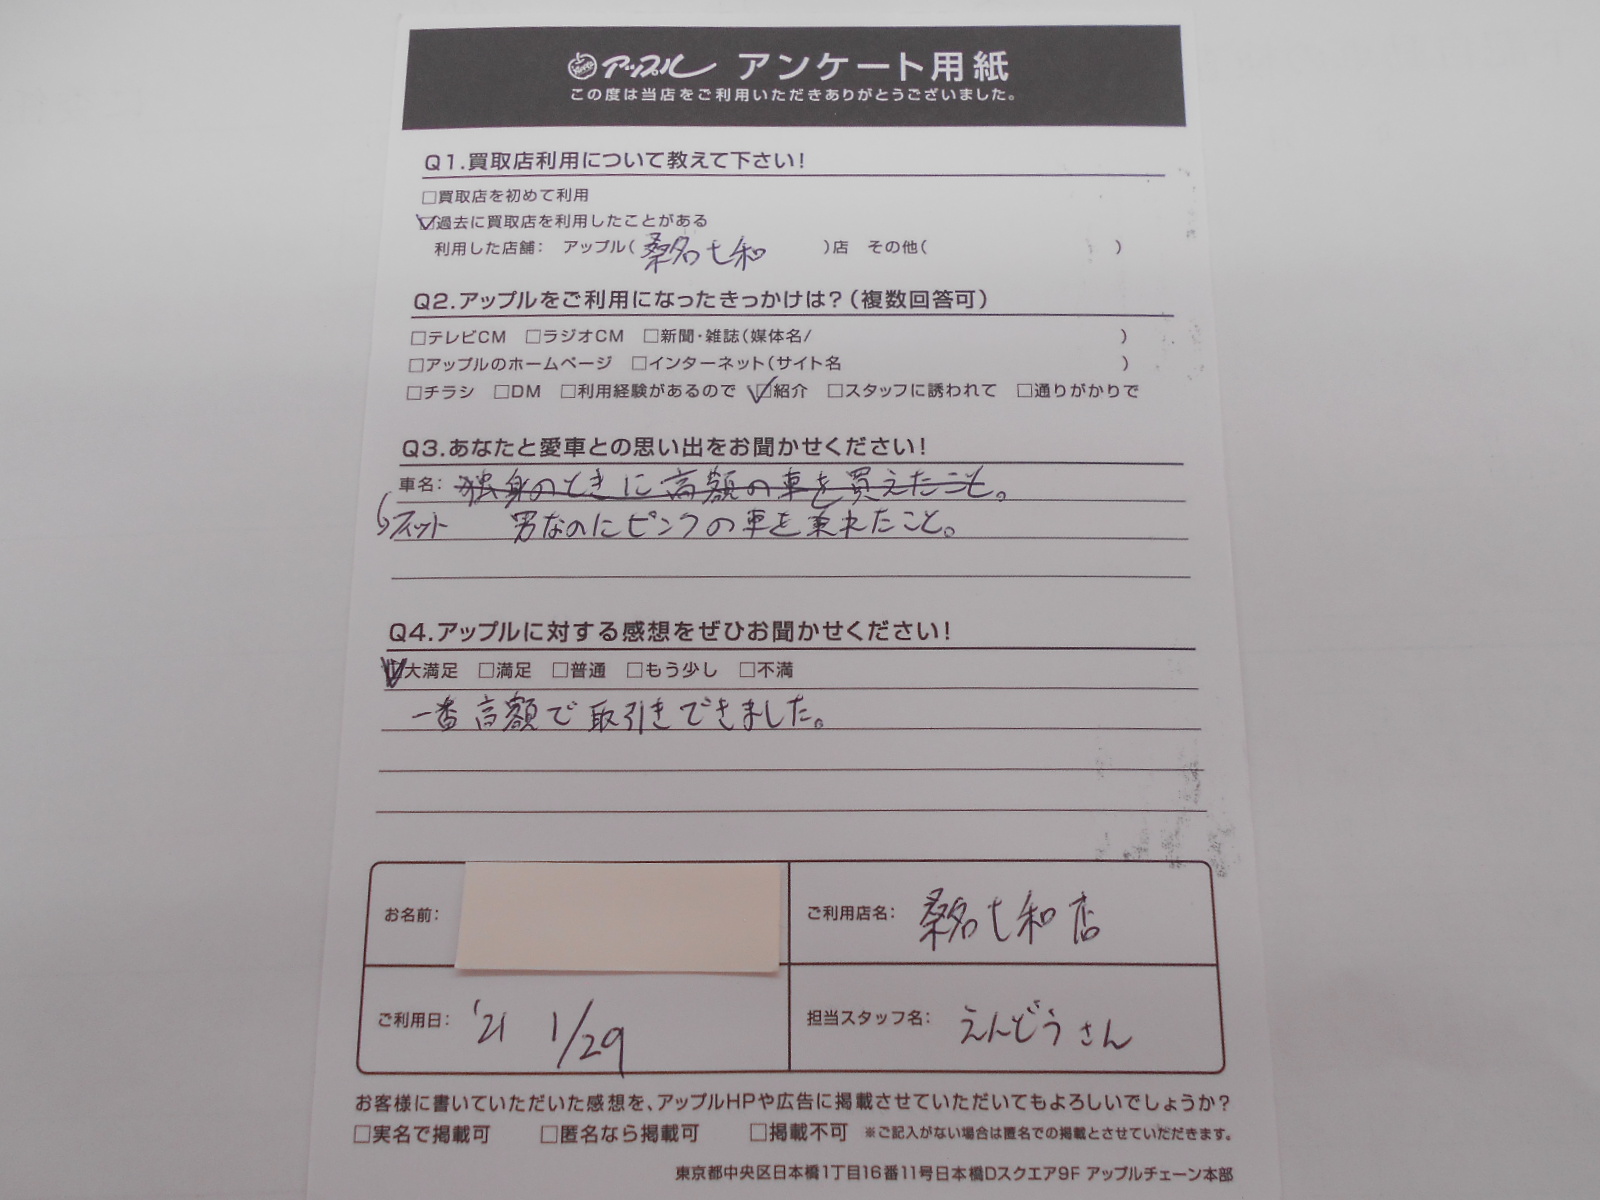 アップル アンケート用紙
この度は当店をご利用いただきありがとうございました。
Q1.買取店利用について教えて下さい!
□買取店を初めて利用
☑過去に買取店を利用したことがある
利用した店舗: アップル(桑名七和)店 その他( )
Q2.アップルをご利用になったきっかけは?(複数回答可)
□テレビCM □ラジオCM □新聞・雑誌(媒体名/ )
□アップルのホームページ □インターネット(サイト名 )
□チラシ □DM □利用経験があるので ☑紹介 □スタッフに誘われて □通りがかりで
Q3.あなたと愛車との思い出をお聞かせください!
車名: 独身のときに高額の車を買えたこと。
フィット 男なのにピンクの車を乗れたこと。
Q4.アップルに対する感想をぜひお聞かせください!
☑大満足 □満足 □普通 □もう少し □不満
一番高額で取引きできました。
お名前:
ご利用店名: 桑名七和店
ご利用日: '21 1/29
担当スタッフ名: えんどうさん
お客様に書いていただいた感想を、アップルHPや広告に掲載させていただいてもよろしいでしょうか?
□実名で掲載可 □匿名なら掲載可 □掲載不可 ※ご記入がない場合は匿名での掲載とさせていただきます。
東京都中央区日本橋1丁目16番11号日本橋Dスクエア9F アップルチェーン本部